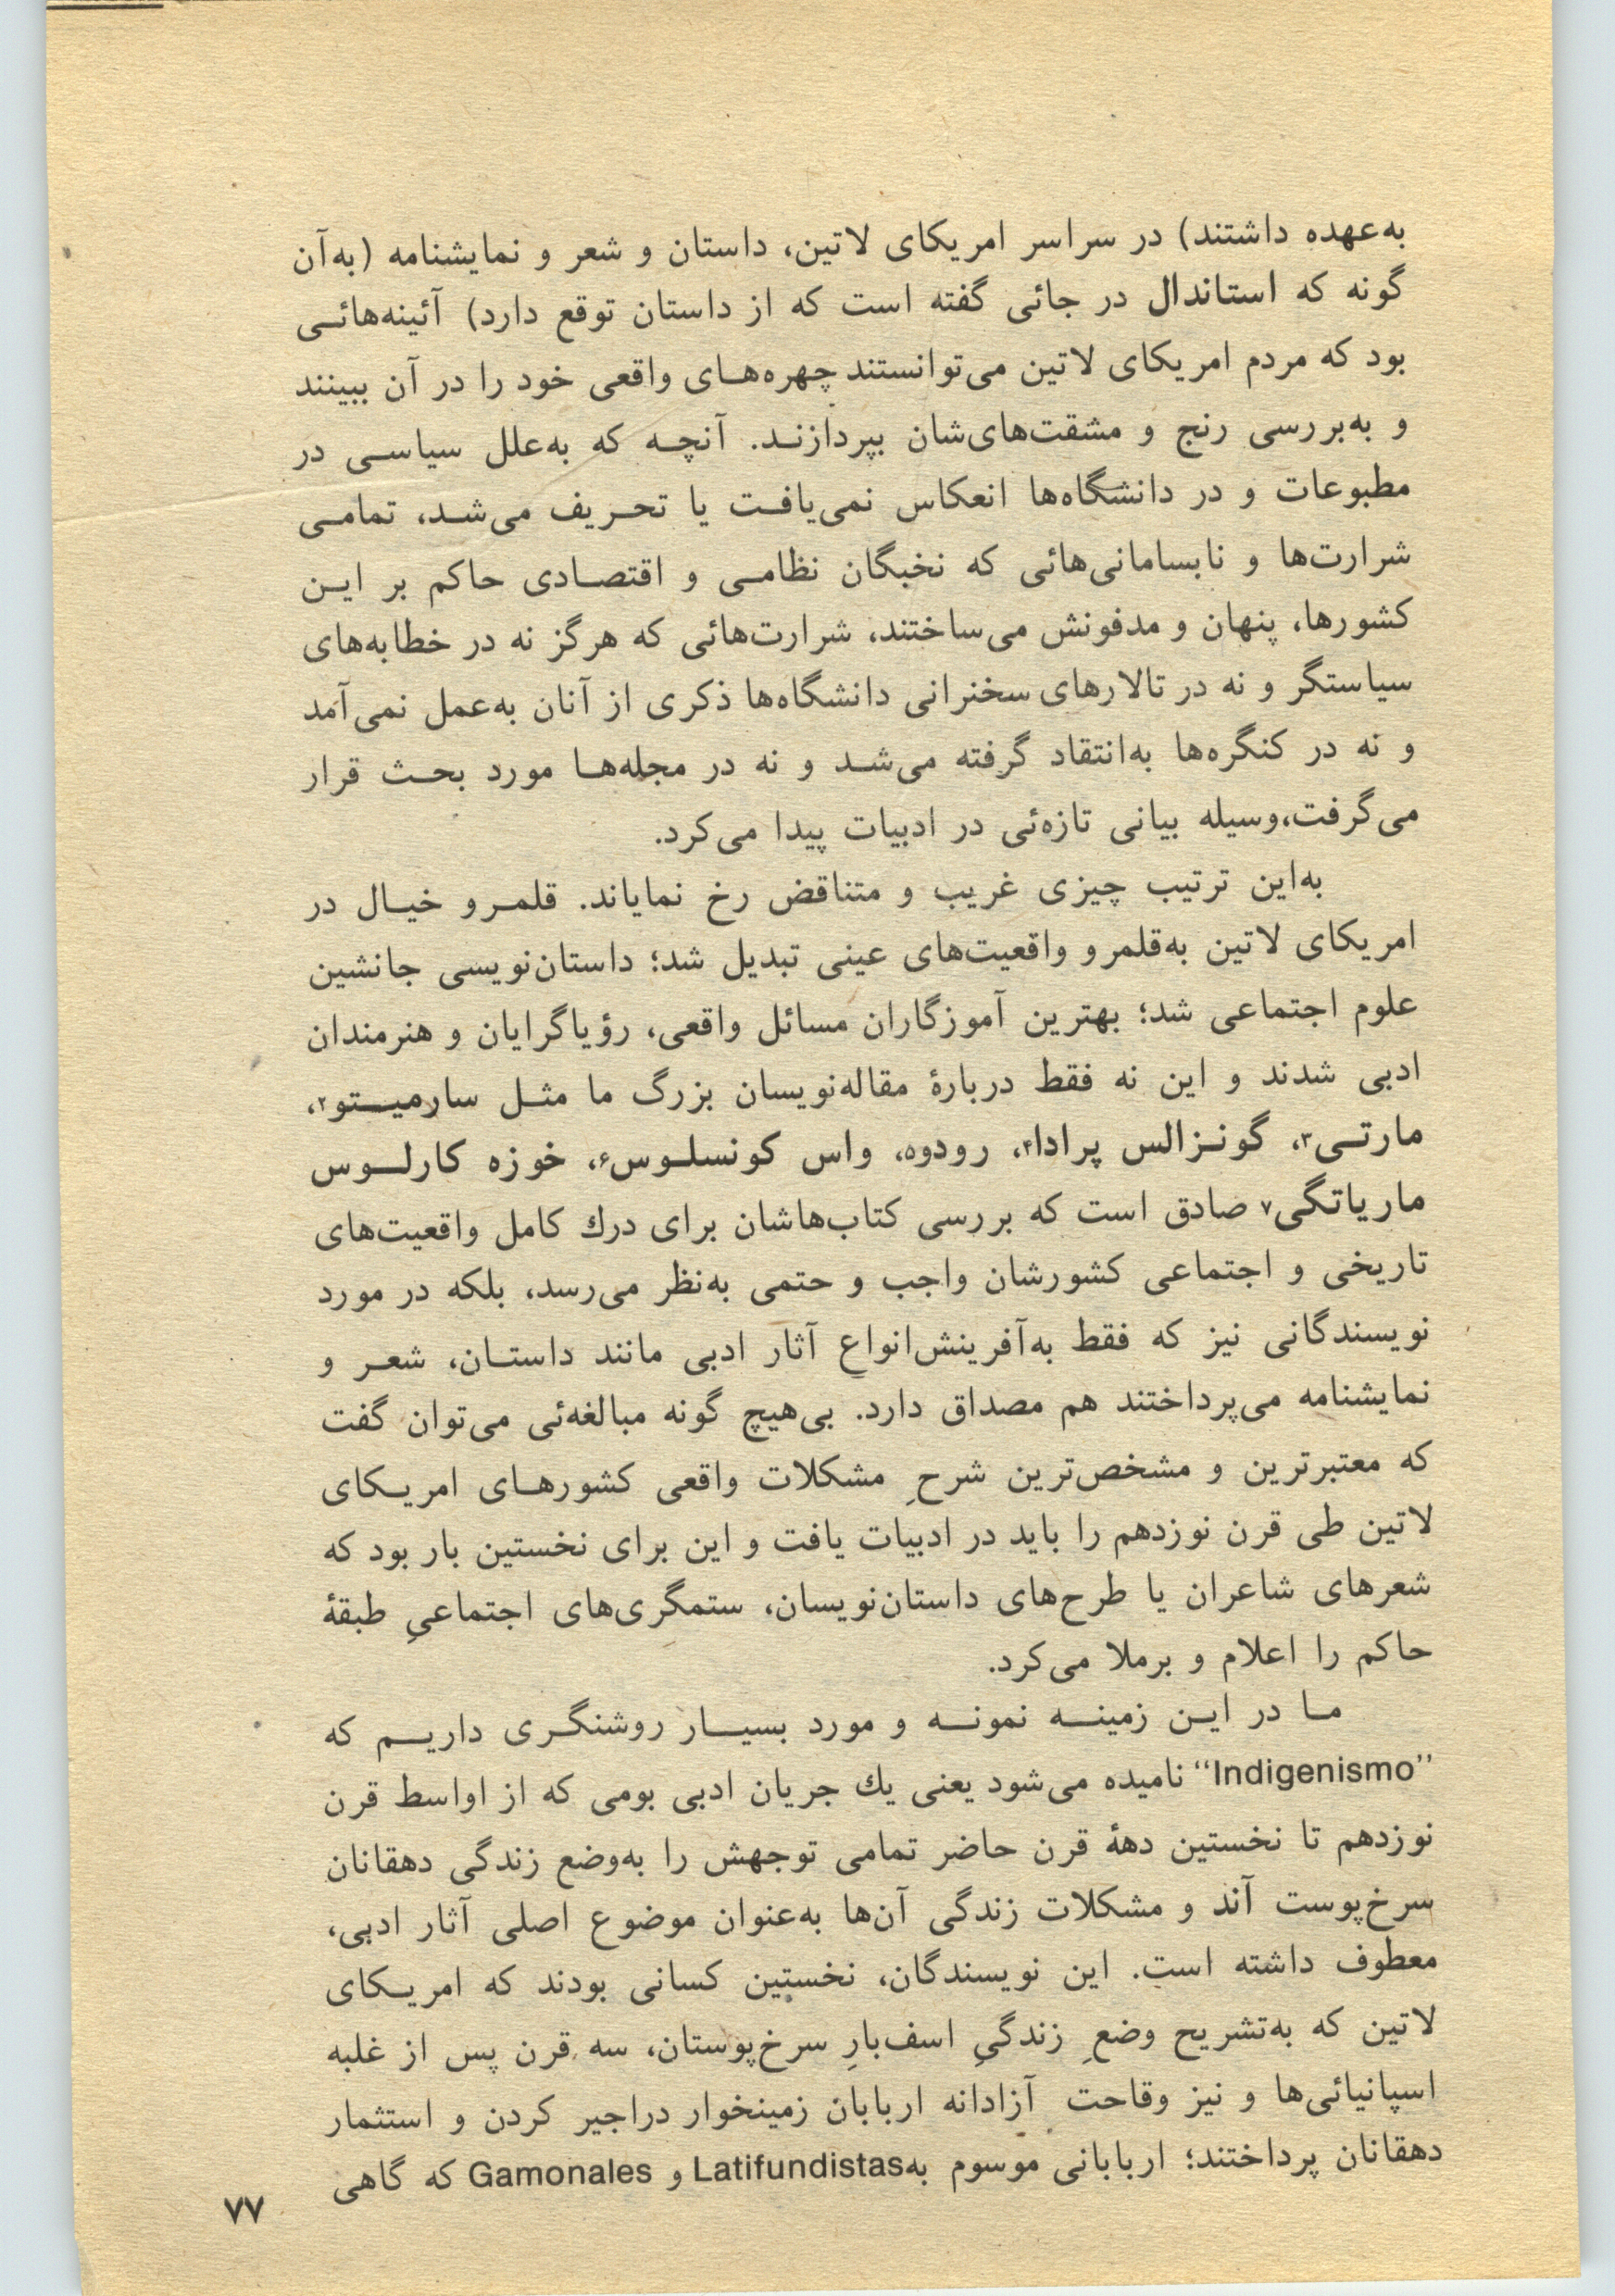 به‌عهده داشتند) در سراسر امریکای لاتین، داستان و شعر و نمایشنامه (به‌آن
گونه که استاندال در جائی گفته است که از داستان توقع دارد) آئینه‌هائی
بود که مردم امریکای لاتین می‌توانستند چهره‌های واقعی خود را در آن ببینند
و به‌بررسی رنج و مشقت‌های‌شان بپردازند. آنچه که به‌علل سیاسی در
مطبوعات و در دانشگاه‌ها انعکاس نمی‌یافت یا تحریف می‌شد، تمامی
شرارت‌ها و نابسامانی‌هائی که نخبگان نظامی و اقتصادی حاکم بر این
کشورها، پنهان و مدفونش می‌ساختند، شرارت‌هائی که هرگز نه در خطابه‌های
سیاستگر و نه در تالارهای سخنرانی دانشگاه‌ها ذکری از آنان به‌عمل نمی‌آمد
و نه در کنگره‌ها به‌انتقاد گرفته می‌شد و نه در مجله‌ها مورد بحث قرار
می‌گرفت،وسیله بیانی تازه‌ئی در ادبیات پیدا می‌کرد.
به‌این ترتیب چیزی غریب و متناقض رخ نمایاند. قلمرو خیال در
امریکای لاتین به‌قلمرو واقعیت‌های عینی تبدیل شد؛ داستان‌نویسی جانشین
علوم اجتماعی شد؛ بهترین آموزگاران مسائل واقعی، رؤیاگرایان و هنرمندان
ادبی شدند و این نه فقط دربارهٔ مقاله‌نویسان بزرگ ما مثل سارمیتو۲،
مارتی۳، گونزالس پرادا۴، رودو۵، واس کونسلوس۶، خوزه کارلوس
ماریاتگی۷ صادق است که بررسی کتاب‌هاشان برای درك کامل واقعیت‌های
تاریخی و اجتماعی کشورشان واجب و حتمی به‌نظر می‌رسد، بلکه در مورد
نویسندگانی نیز که فقط به‌آفرینش‌انواع آثار ادبی مانند داستان، شعر و
نمایشنامه می‌پرداختند هم مصداق دارد. بی‌هیچ گونه مبالغه‌ئی می‌توان گفت
که معتبرترین و مشخص‌ترین شرحِ مشکلات واقعی کشورهای امریکای
لاتین طی قرن نوزدهم را باید در ادبیات یافت و این برای نخستین بار بود که
شعرهای شاعران یا طرح‌های داستان‌نویسان، ستمگری‌های اجتماعیِ طبقهٔ
حاکم را اعلام و برملا می‌کرد.
ما در این زمینه نمونه و مورد بسیار روشنگری داریم که
“Indigenismo” نامیده می‌شود یعنی یك جریان ادبی بومی که از اواسط قرن
نوزدهم تا نخستین دههٔ قرن حاضر تمامی توجهش را به‌وضع زندگی دهقانان
سرخ‌پوست آند و مشکلات زندگی آن‌ها به‌عنوان موضوع اصلی آثار ادبی،
معطوف داشته است. این نویسندگان، نخستین کسانی بودند که امریکای
لاتین که به‌تشریح وضعِ زندگیِ اسف‌بارِ سرخ‌پوستان، سه قرن پس از غلبه
اسپانیائی‌ها و نیز وقاحت آزادانه اربابان زمینخوار دراجیر کردن و استثمار
دهقانان پرداختند؛ اربابانی موسوم به‌Latifundistas و Gamonales که گاهی
۷۷